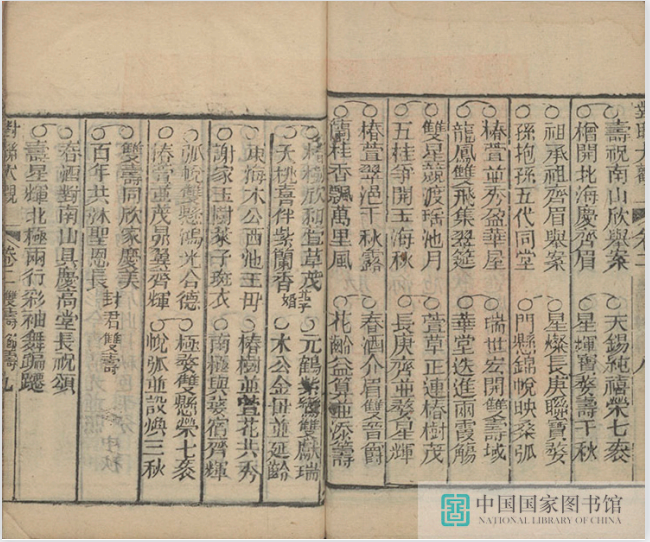 對聯大觀 卷二 八
壽祝南山欣舉案 天錫純禧榮七袠
樽開北海慶齊眉 星輝寶婺壽千秋
祖承祖齊眉舉案 星燦長庚聯寶婺
孫抱孫五代同堂 門懸錦帨映桑弧
椿萱並秀盈華屋 瑞世宏開雙壽域
龍鳳雙飛集翠筵 華堂迭進兩霞觴
雙星競渡瑶池月 萱草正連椿樹茂
五桂爭開玉海秋 長庚齊並婺星輝
椿萱翠浥千秋露 春酒介眉雙晉爵
蘭桂香飄萬里風 花齡益算並添籌
欣和萱草茂 元鶴雙獻瑞
天桃喜伴紫蘭香 生子婚 木公金母並延齡
東海木公西池王母 椿樹並萱花共秀
謝家玉樹萊子斑衣 南極與婺宿齊輝
弧帨雙懸鴻光合德 極婺雙懸榮七袠
椿萱並茂昴翼齊輝 帨弧並設煥三秋
雙壽同欣家慶美
百年共沐聖恩長
封君雙壽
春酒對南山具慶高堂長祝頌
壽星輝北極兩行彩袖舞蹁躚
對聯大觀 卷二 雙壽 九
中国国家图书馆
NATIONAL LIBRARY OF CHINA